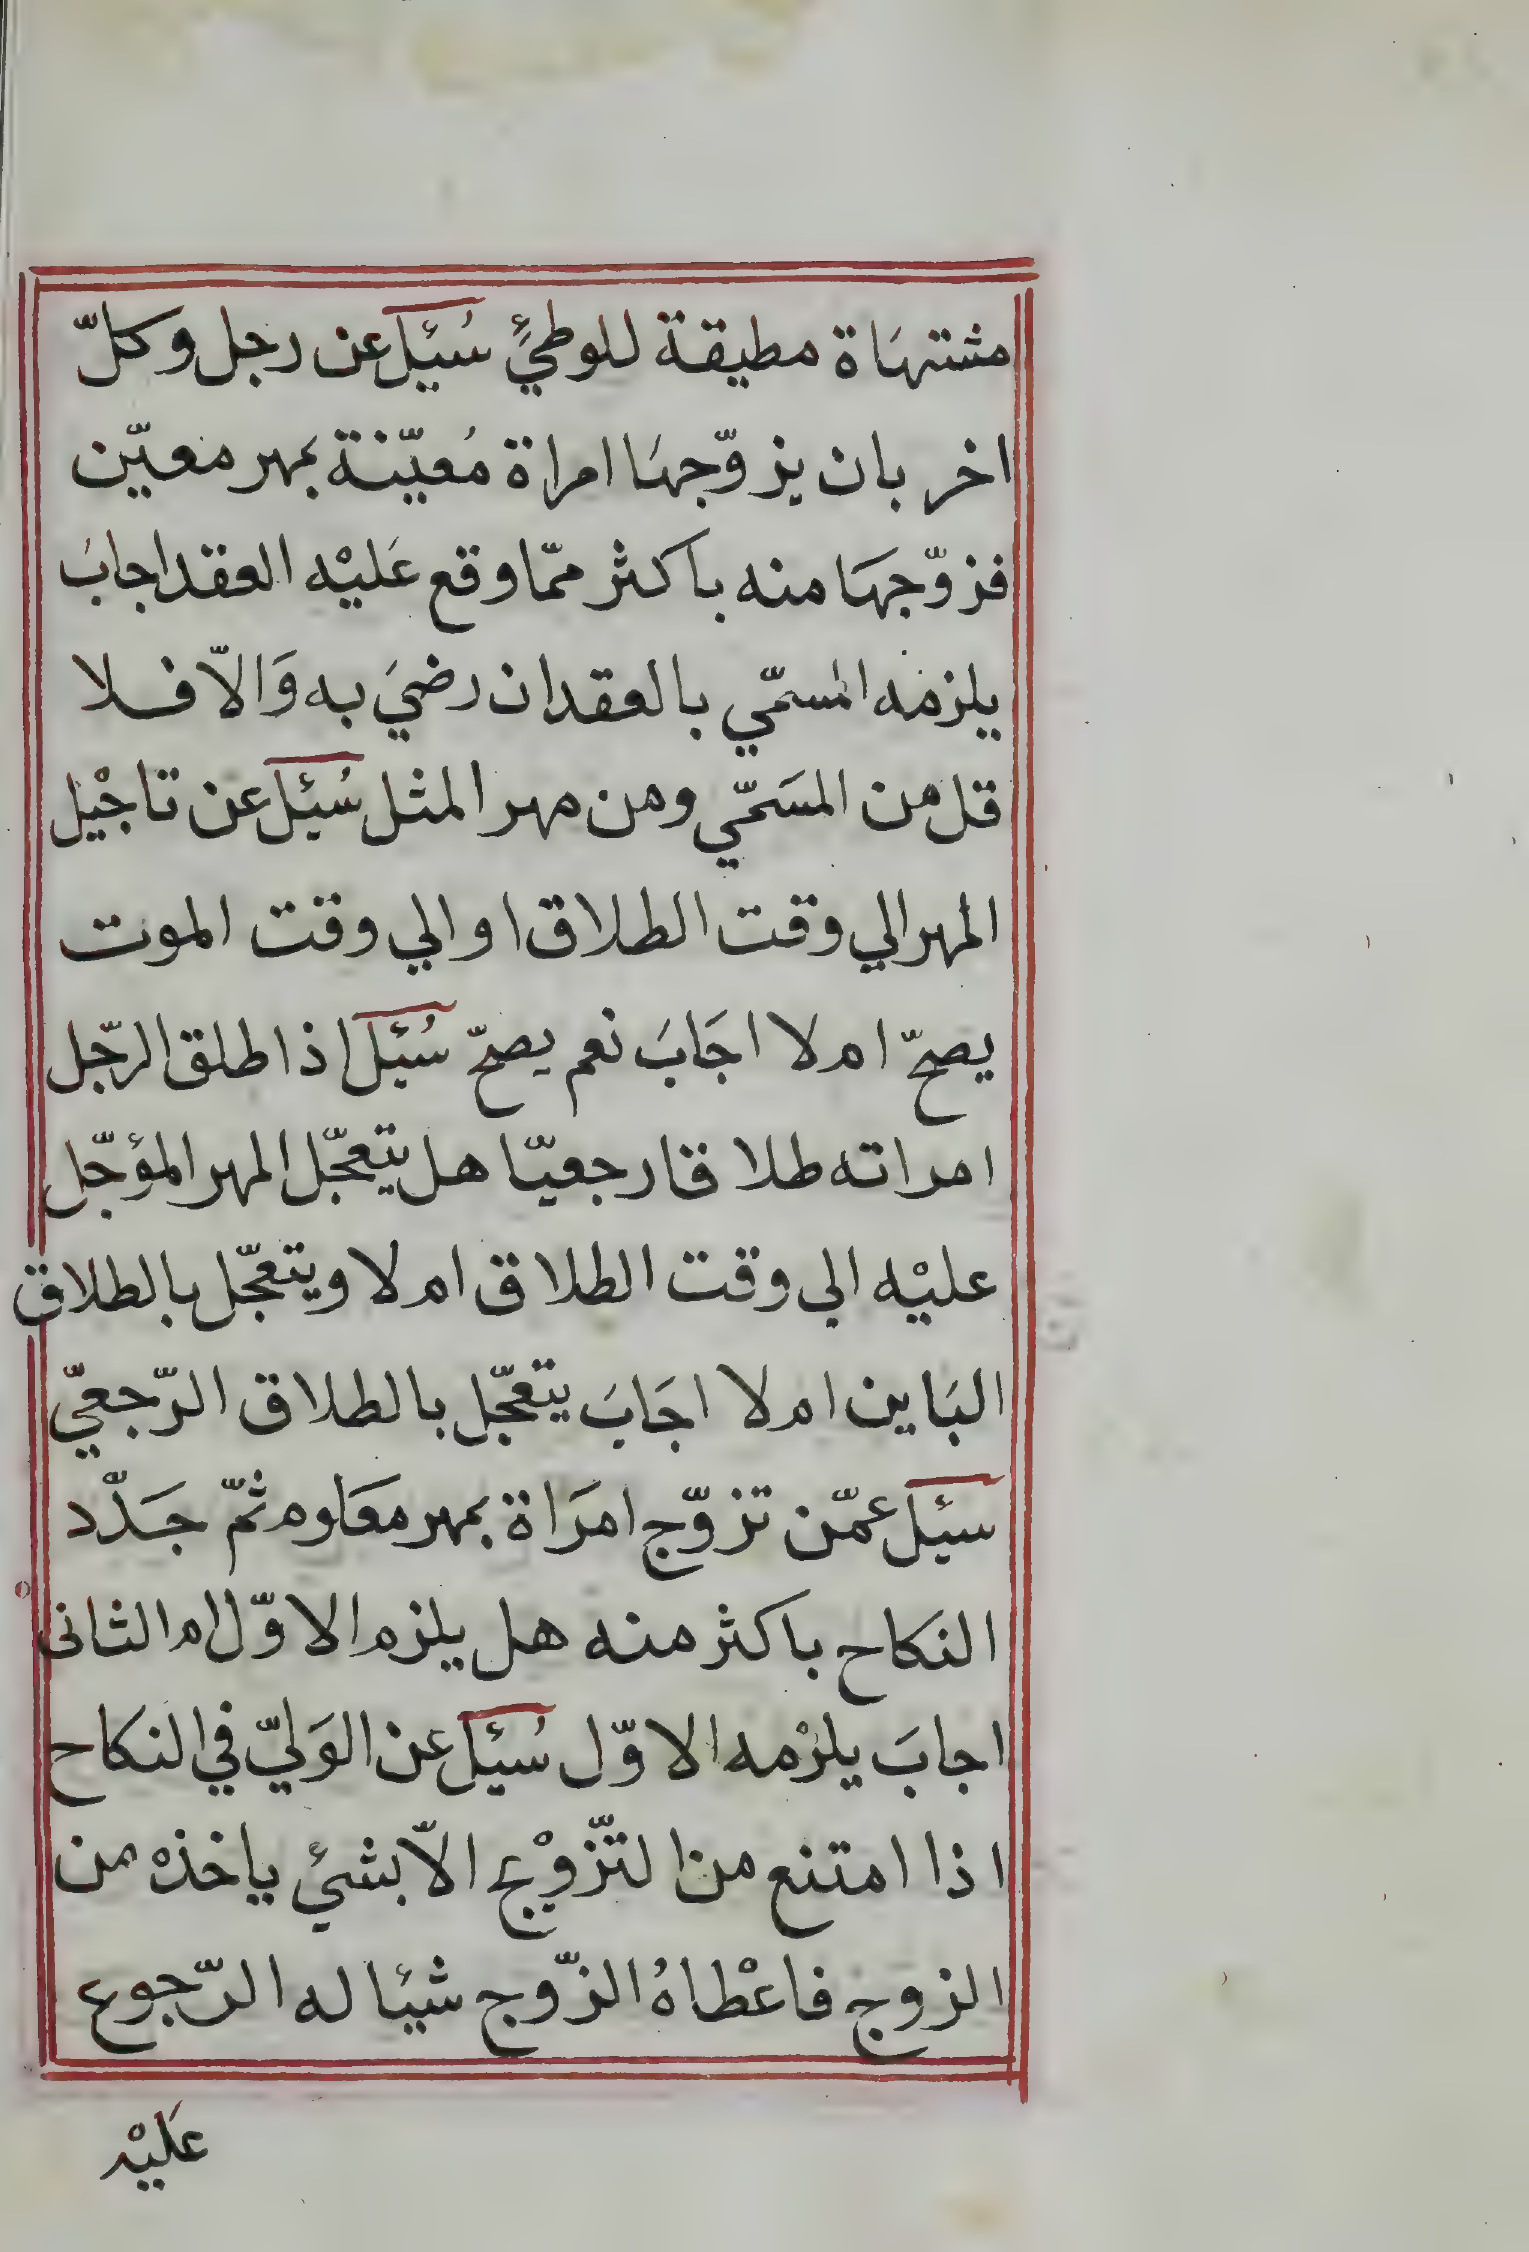 مشتهاة مطيقة للوطئ سُئِل عن رجل وكلّ
اخر بان يزوّجها امراة مُعيّنة بمهر معيّن
فزوّجهَا منه باكثر ممّا وقع عَليْه العقد اجابَ
يلزمه المسمّي بالعقد ان رضيَ به وَالاّ فلا
قل من المسَمّي ومن مهر المثل سُئل عن تاجيْل
المهر الي وقت الطلاق او الي وقت الموت
يصحّ ام لا اجَابَ نعم يصحّ سُئل اذا طلق الرّجل
امراته طلاقا رجعيّا هل يتعجّل المهر المؤجّل
عليْه الي وقت الطلاق ام لا ويتعجّل بالطلاق
البَاين ام لا اجَابَ يتعجّل بالطلاق الرّجعيّ
سئل عمّن تزوّج امرَاة بمهر معَلوم ثمّ جَدّد
النكاح باكثر منه هل يلزم الاوّل ام الثانى
اجابَ يلزمه الاوّل سُئل عن الوَليّ في النكاح
اذا امتنع من التّزوْيج الاّ بشئ ياخذهْ من
الزوج فاعْطاهُ الزّوج شيئا له الرّجوع
عَليْه